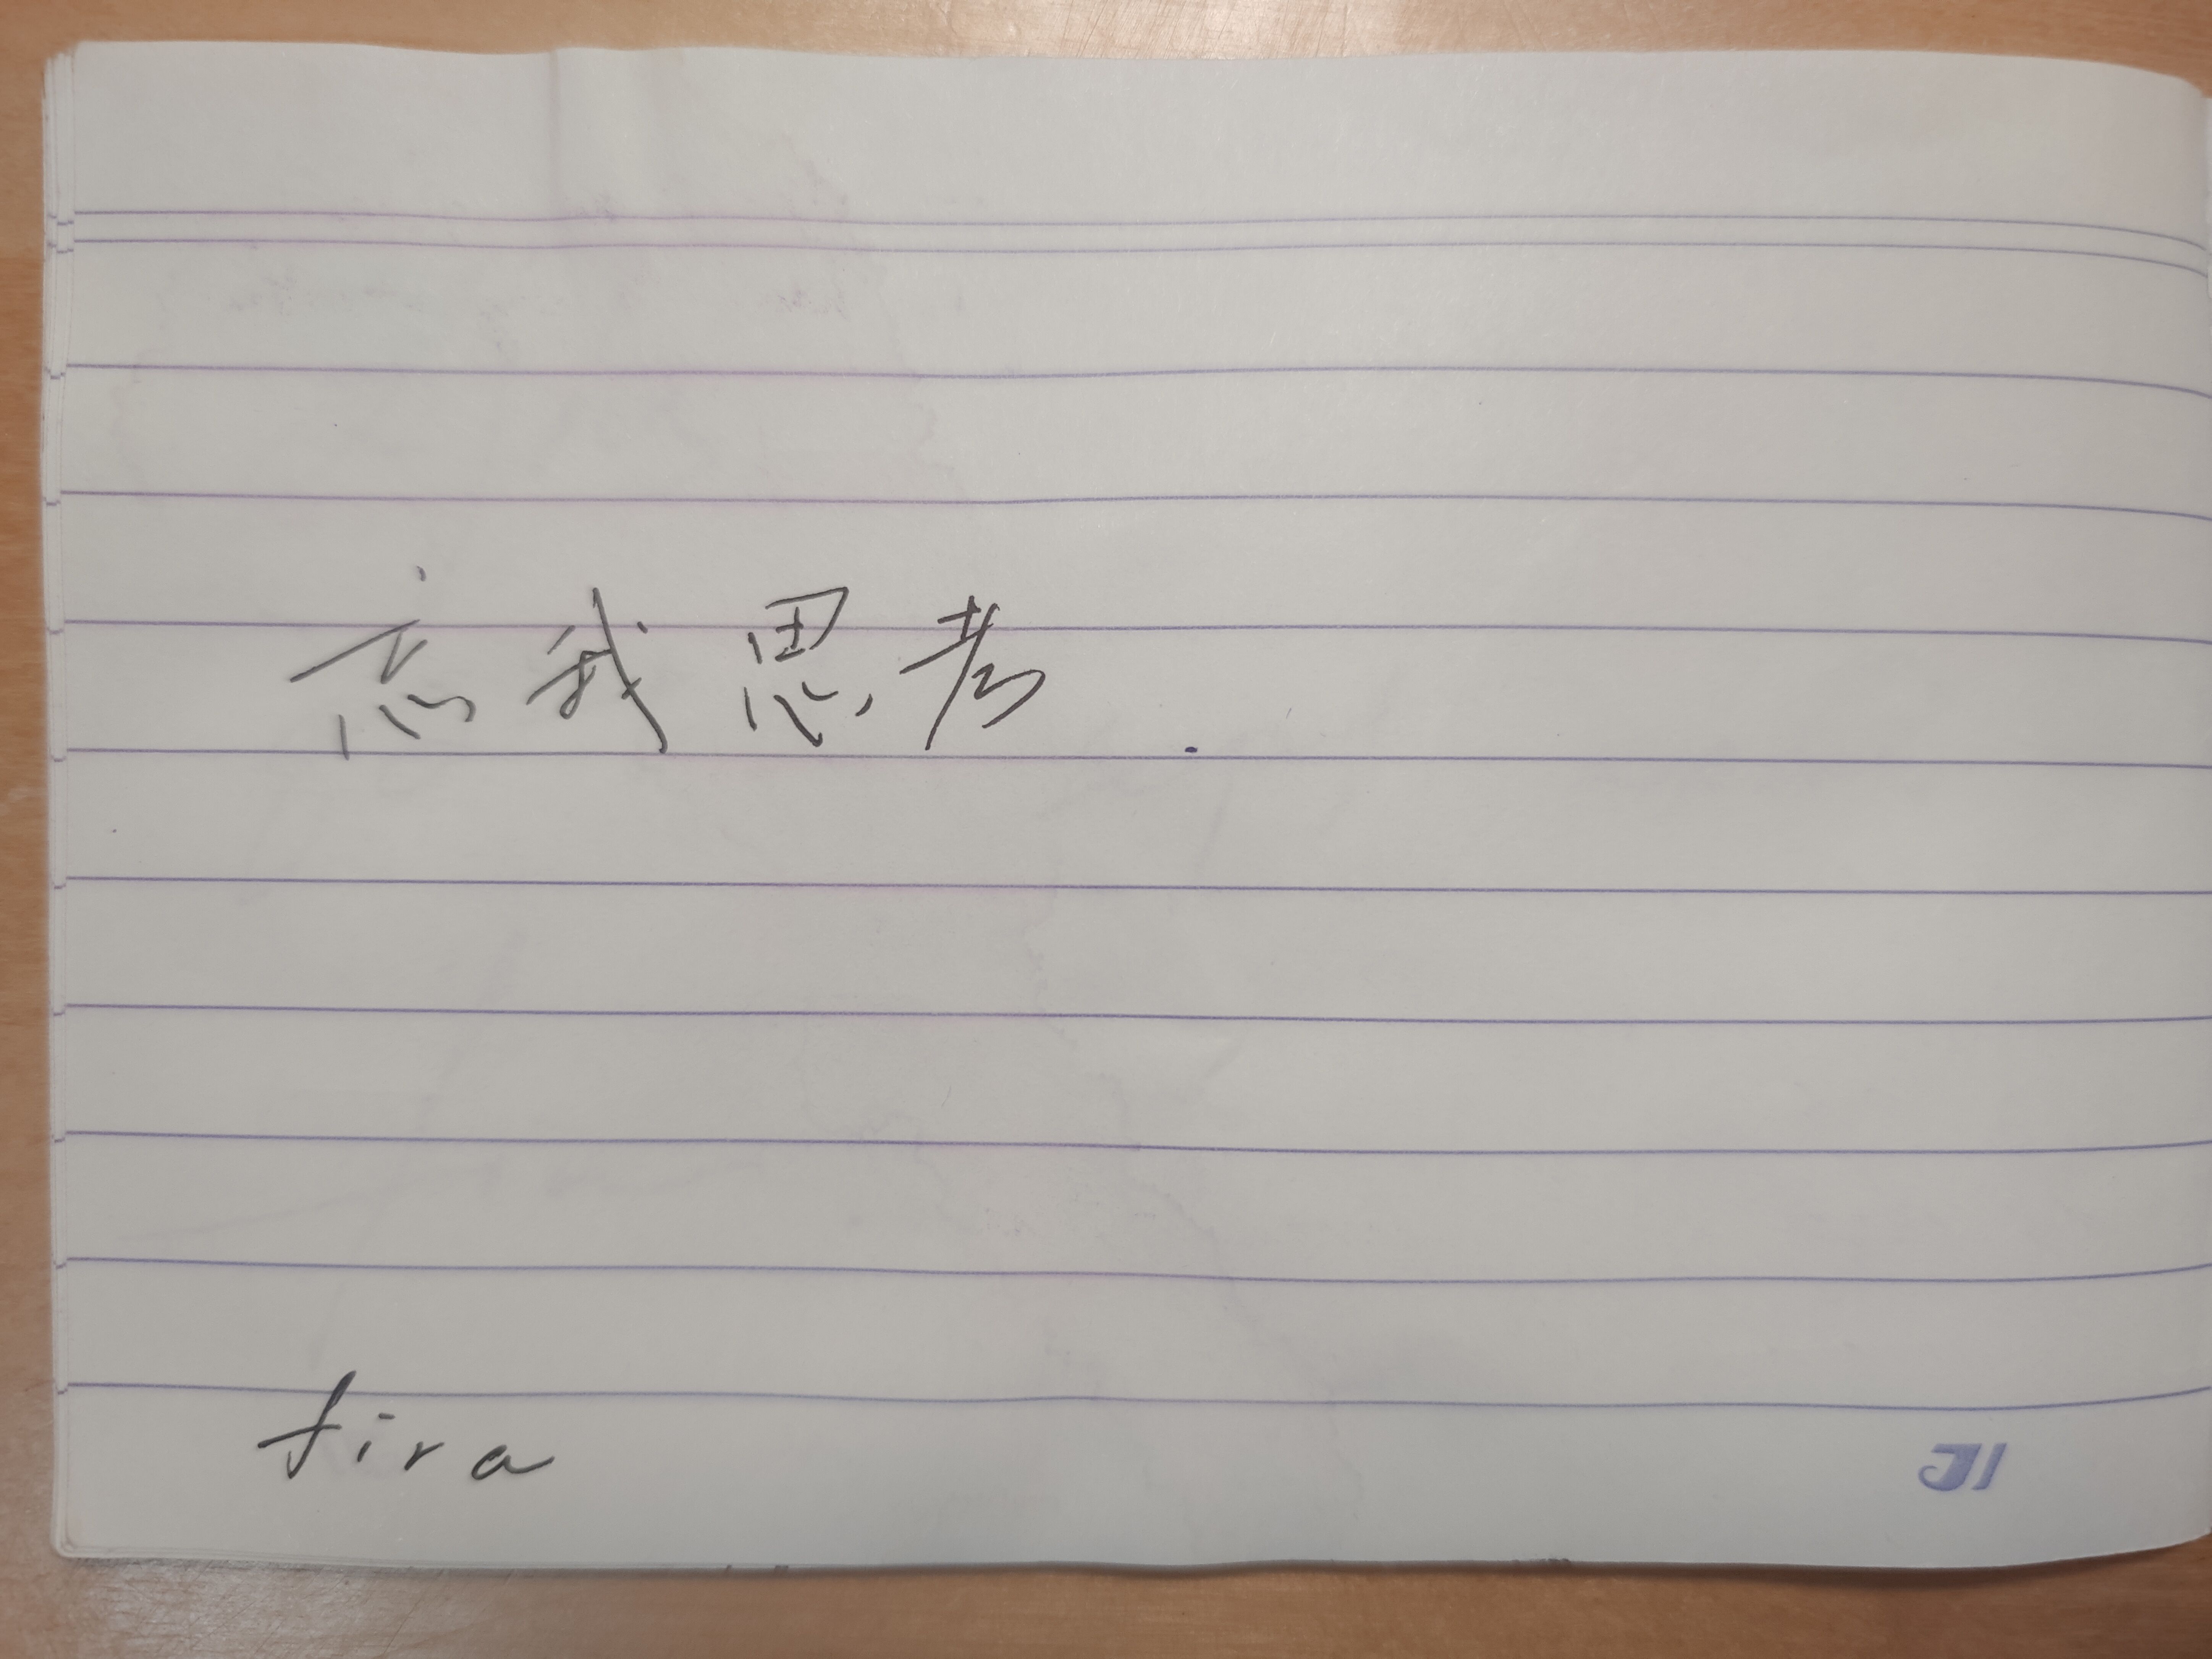 忘我思考
fira
JI